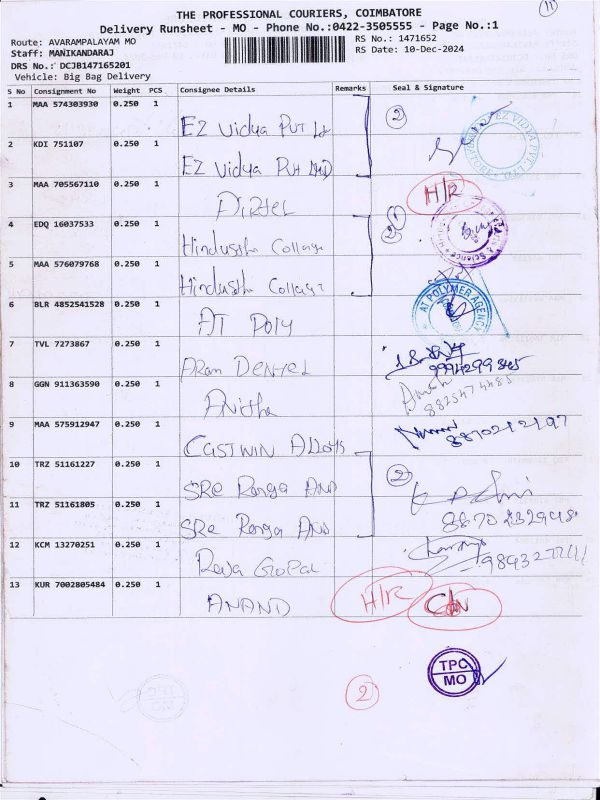 11
THE PROFESSIONAL COURIERS, COIMBATORE
Delivery Runsheet - MO - Phone No.:0422-3505555 - Page No.:1
Route: AVARAMPALAYAM MO
RS No.: 1471652
Staff: MANIKANDARAJ
RS Date: 10-Dec-2024
DRS No.: DCJB147165201
Vehicle: Big Bag Delivery
S No Consignment No Weight PCS Consignee Details Remarks Seal & Signature
1 MAA 574303930 0.250 1 EZ Vidya PVT Ltd 2
2 KDI 751107 0.250 1 EZ Vidya PVT
3 MAA 705567110 0.250 1 AIRTEL H/R
4 EDQ 16037533 0.250 1 Hindustha College 2
5 MAA 576079768 0.250 1 Hindustha College
6 BLR 4852541528 0.250 1 AT Poly AT POLYMER AGENCY
7 TVL 7273867 0.250 1 ARam DENTEL
8 GGN 911363590 0.250 1 Anitha 8825474485
9 MAA 575912947 0.250 1 CASTWIN Alloys 8870212197
10 TRZ 51161227 0.250 1 SRe Ranga AND 2
11 TRZ 51161805 0.250 1 SRe Ranga AND
12 KCM 13270251 0.250 1 Raja GoPal
13 KUR 7002805484 0.250 1 ANAND H/R
TPC
MO
2